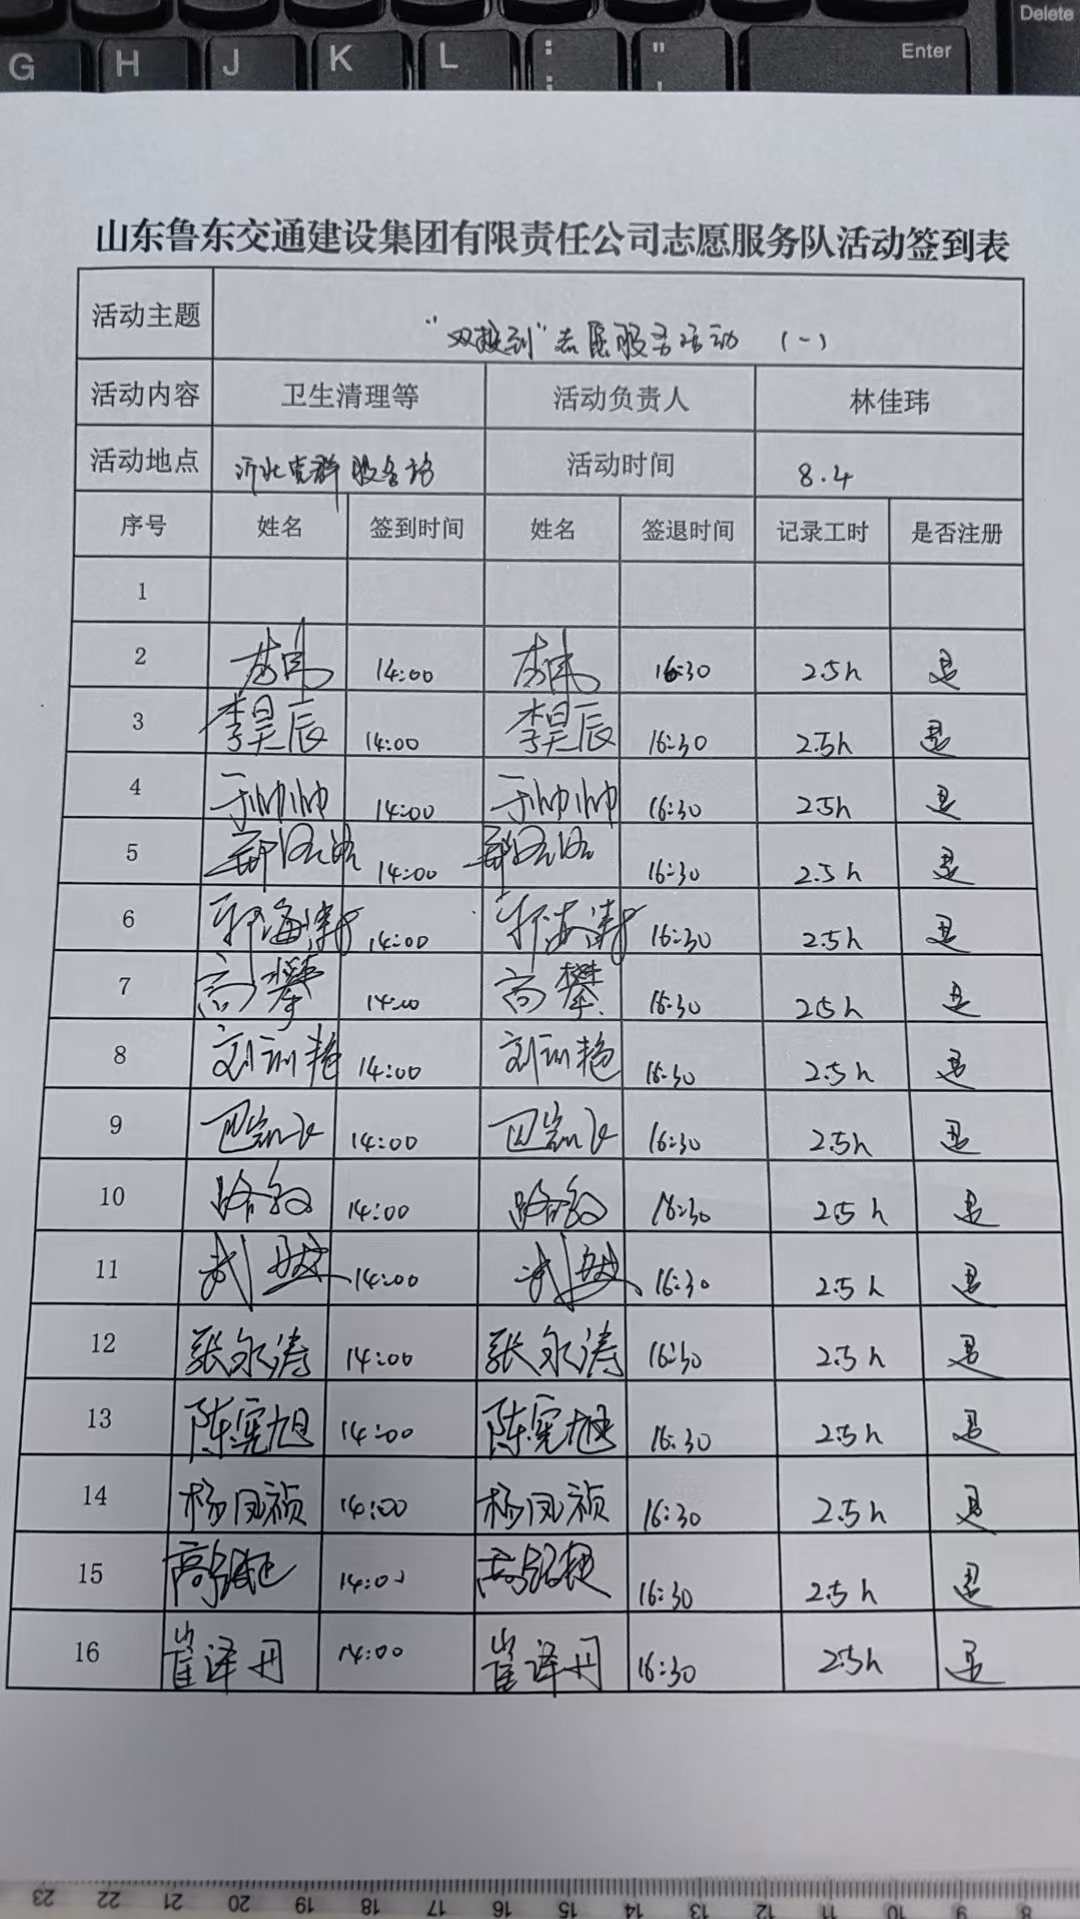 Delete
G H J K L : ; " ' Enter
山东鲁东交通建设集团有限责任公司志愿服务队活动签到表
活动主题 "双报到"志愿服务活动 (一)
活动内容 卫生清理等 活动负责人 林佳玮
活动地点 沂北党群服务站 活动时间 8.4
序号 姓名 签到时间 姓名 签退时间 记录工时 是否注册
1
2 14:00 16:30 2.5h 是
3 李昊辰 14:00 李昊辰 16:30 2.5h 是
4 于帅帅 14:00 于帅帅 16:30 2.5h 是
5 14:00 16:30 2.5h 是
6 14:00 16:30 2.5h 是
7 高攀 14:00 高攀 16:30 2.5h 是
8 刘训艳 14:00 刘训艳 16:30 2.5h 是
9 14:00 16:30 2.5h 是
10 14:00 16:30 2.5h 是
11 14:00 16:30 2.5h 是
12 张永涛 14:00 张永涛 16:30 2.5h 是
13 陈宪旭 14:00 陈宪旭 16:30 2.5h 是
14 杨凤祯 14:00 杨凤祯 16:30 2.5h 是
15 14:00 16:30 2.5h 是
16 崔译丹 14:00 崔译丹 16:30 2.5h 是
23 22 21 20 19 18 17 16 15 14 13 12 11 10 9 8